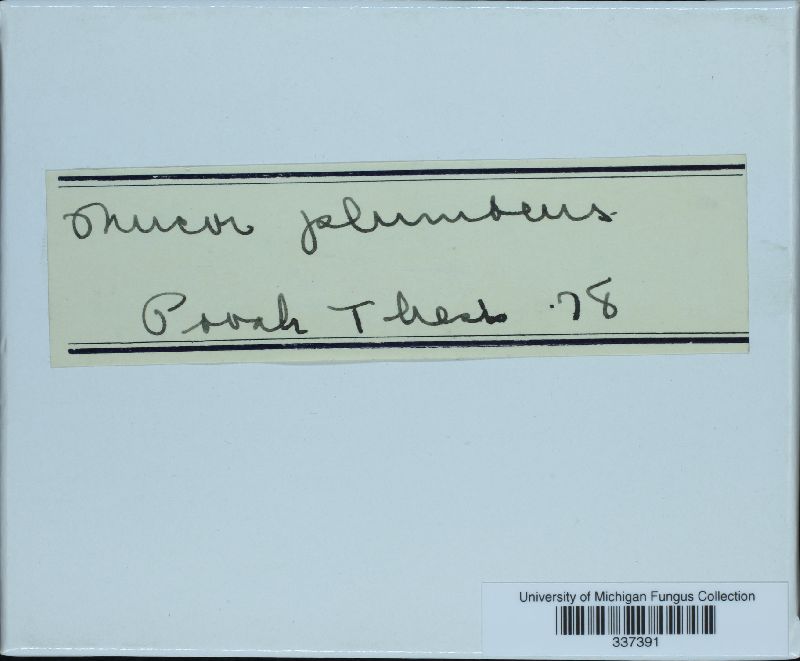 Mucor plumbeus
Povah Thesis .78
University of Michigan Fungus Collection
337391